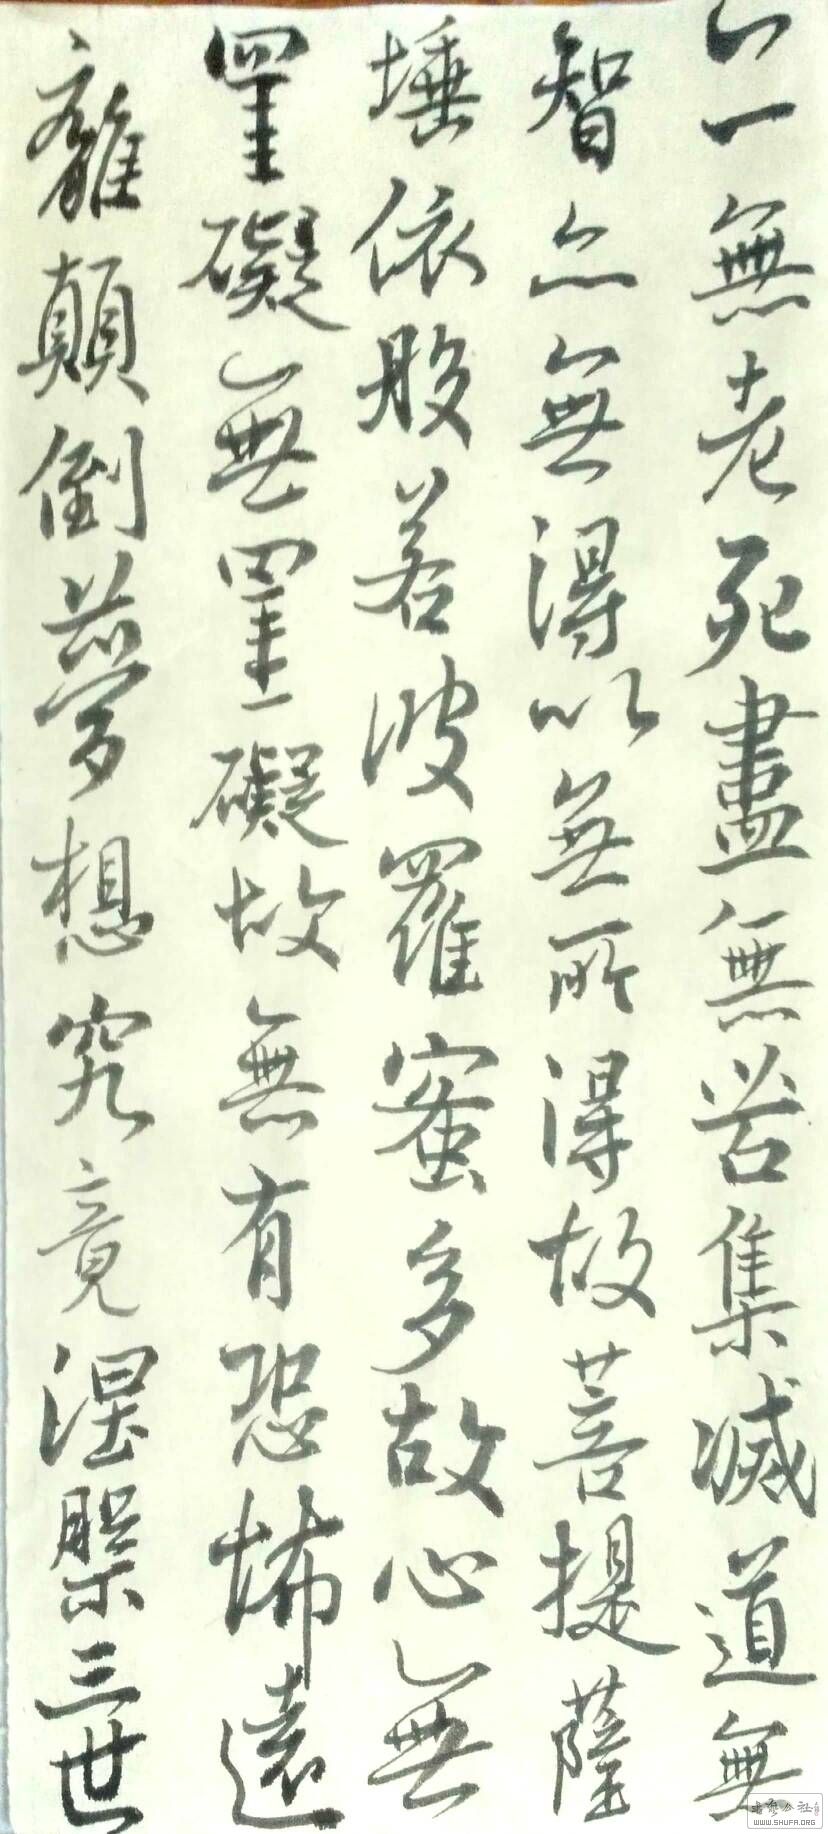 亦無老死盡無苦集滅道無
智亦無得以無所得故菩提薩
埵依般若波羅蜜多故心無
罣礙無罣礙故無有恐怖遠
離顛倒夢想究竟涅槃三世
WWW.SHUFA.ORG